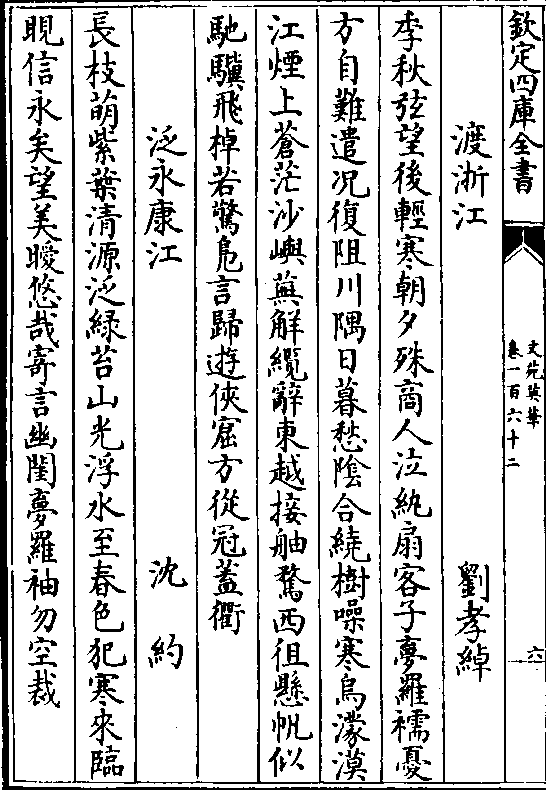 欽定四庫全書
文苑英華
卷一百六十二
六
渡浙江
劉孝綽
季秋弦望後輕寒朝夕殊商人泣紈扇客子夢羅襦憂
方自難遣况復阻川隅日暮愁陰合繞樹噪寒烏濛漠
江煙上蒼茫沙嶼蕪解纜辭東越接舳騖西徂懸帆似
馳驥飛棹若驚鳬言歸遊俠窟方從冠蓋衢
泛永康江
沈約
長枝萌紫葉清源泛緑苔山光浮水至春色犯寒來臨
睍信永矣望美曖悠哉寄言幽閨夢羅袖勿空裁